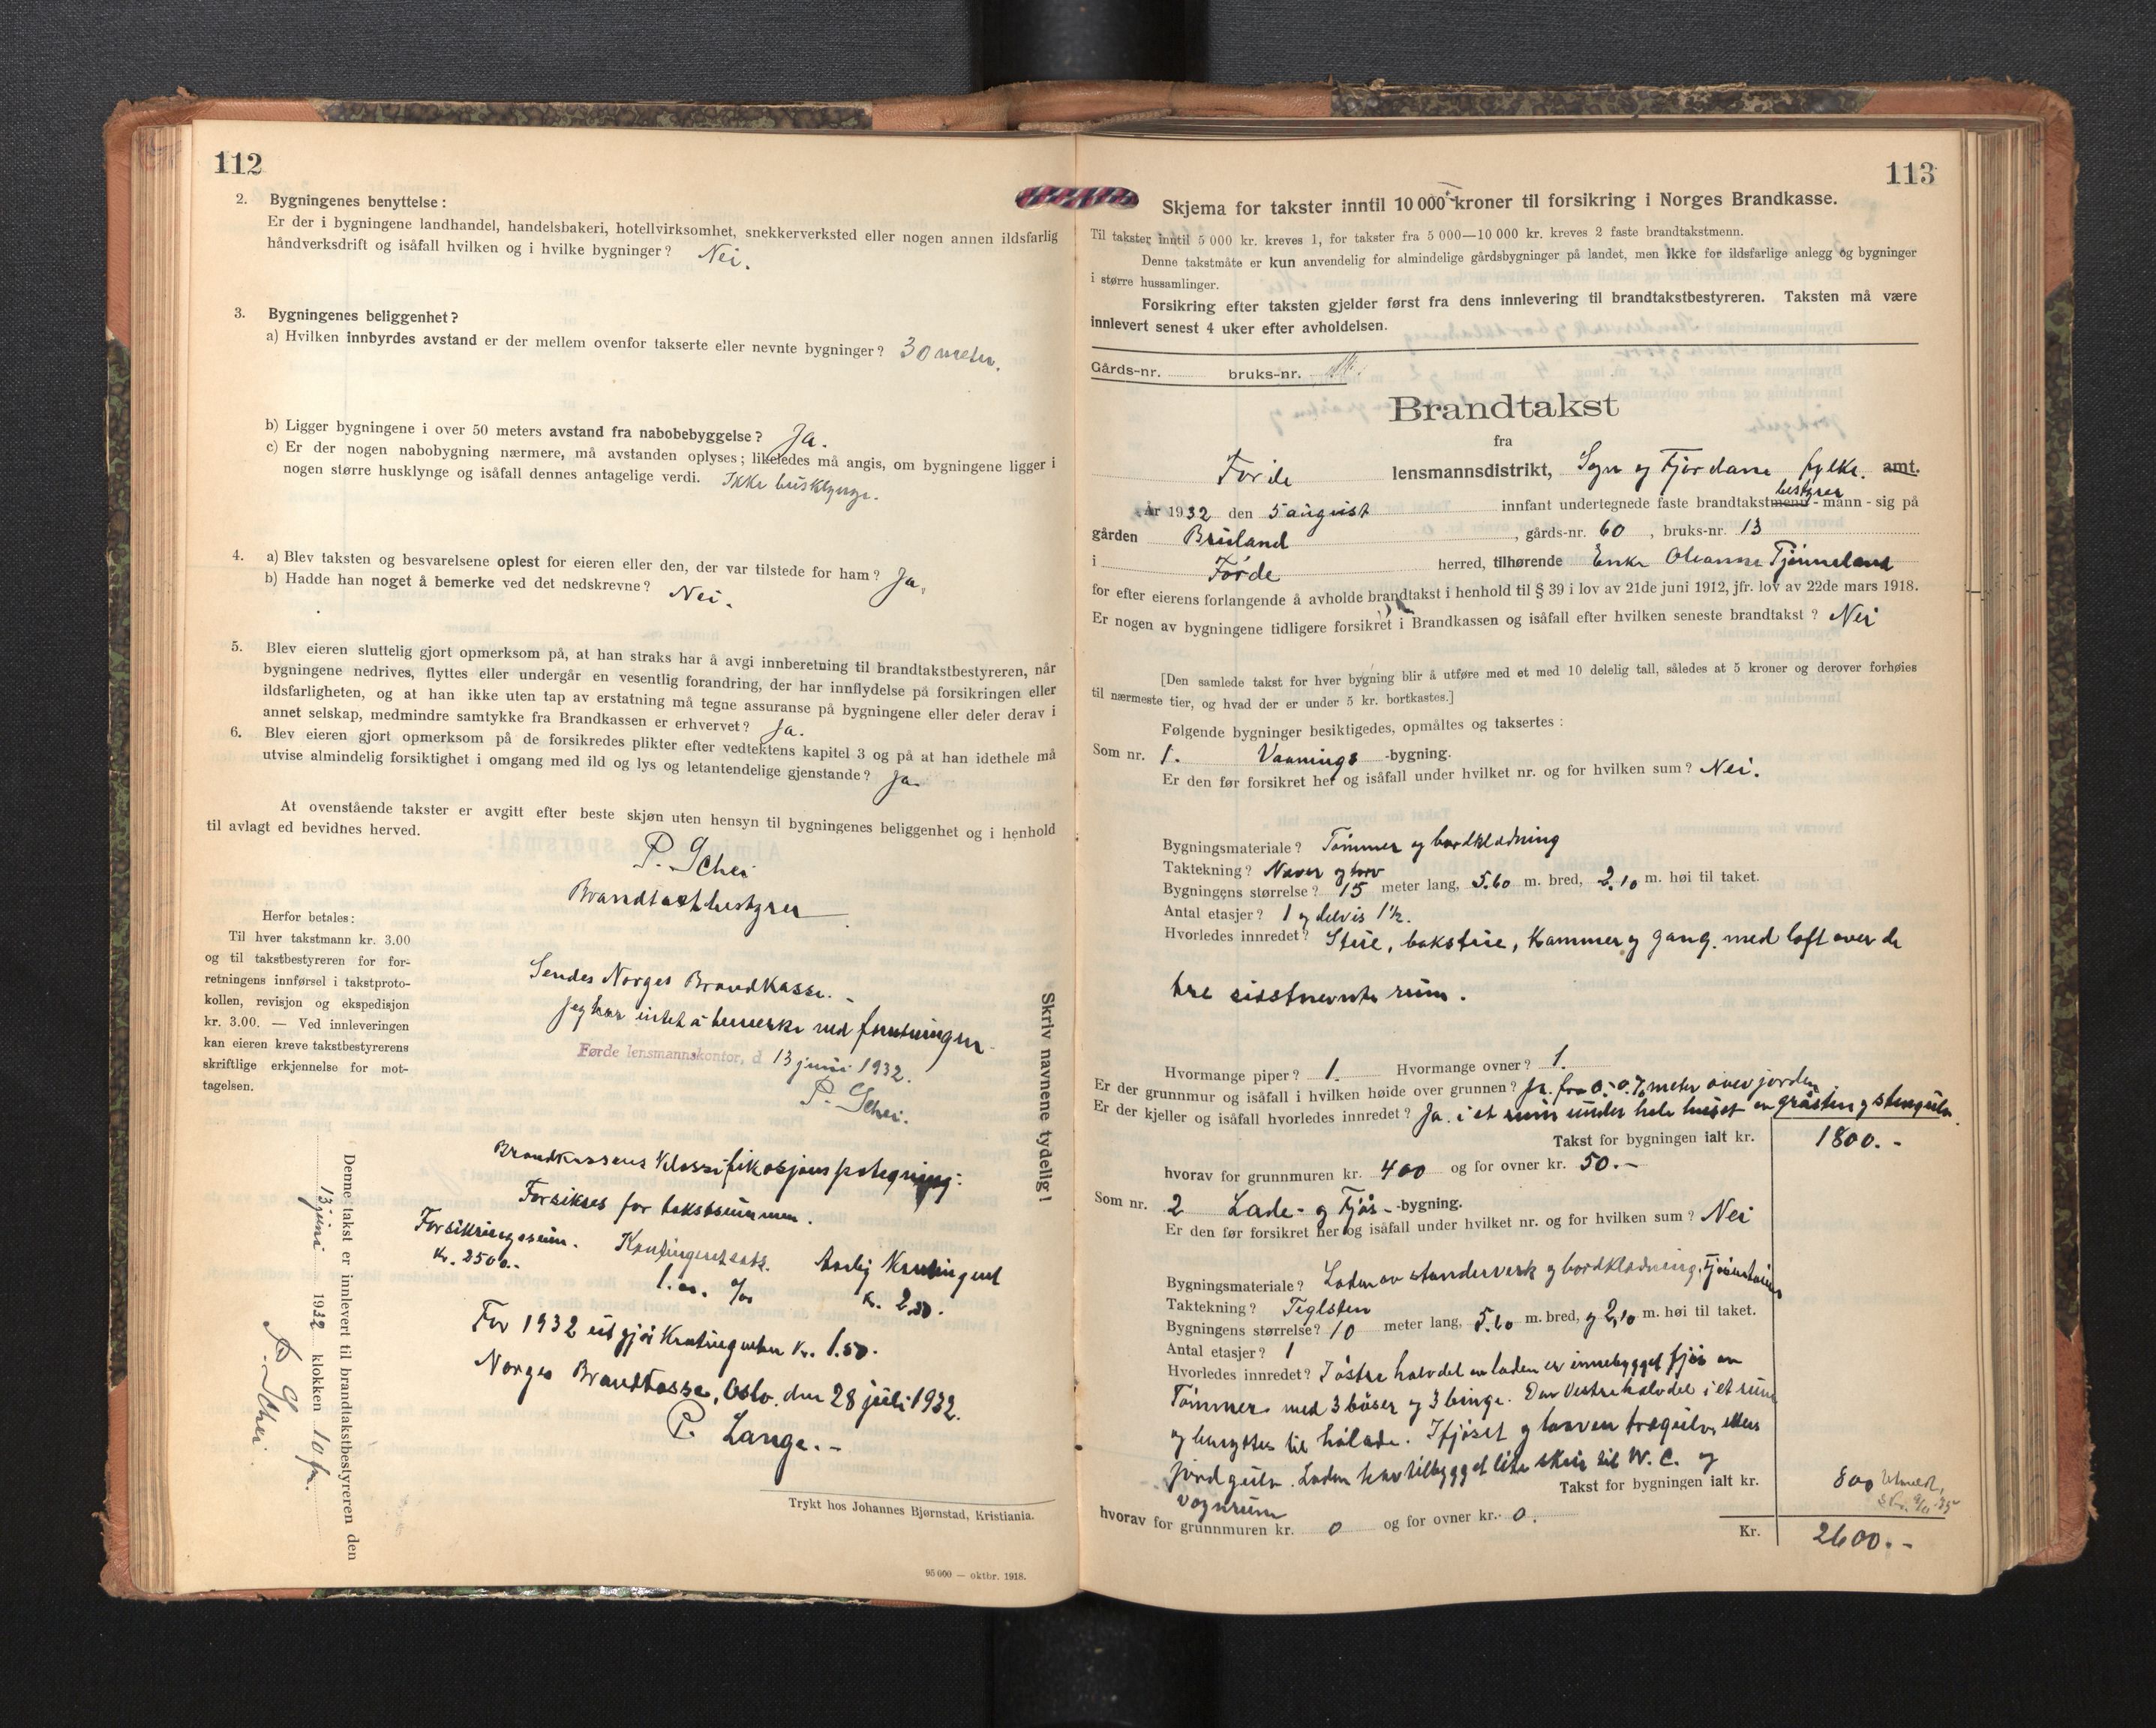 112
2. Bygningenes benyttelse:
Er der i bygningene landhandel, handelsbakeri, hotellvirksomhet, snekkerverksted eller nogen annen ildsfarlig
håndverksdrift og isåfall hvilken og i hvilke bygninger? Nei.
3. Bygningenes beliggenhet?
a) Hvilken innbyrdes avstand er der mellem ovenfor takserte eller nevnte bygninger? 30 meter.
b) Ligger bygningene i over 50 meters avstand fra nabobebyggelse? Ja.
c) Er der nogen nabobygning nærmere, må avstanden oplyses; likeledes må angis, om bygningene ligger i
nogen større husklynge og isåfall dennes antagelige verdi. Ikke husklynge.
4. a) Blev taksten og besvarelsene oplest for eieren eller den, der var tilstede for ham? Ja.
b) Hadde han noget å bemerke ved det nedskrevne? Nei.
5. Blev eieren sluttelig gjort opmerksom på, at han straks har å avgi innberetning til brandtakstbestyreren, når
bygningene nedrives, flyttes eller undergår en vesentlig forandring, der har innflydelse på forsikringen eller
ildsfarligheten, og at han ikke uten tap av erstatning må tegne assuranse på bygningene eller deler derav i
annet selskap, medmindre samtykke fra Brandkassen er erhvervet? Ja.
6. Blev eieren gjort opmerksom på de forsikredes plikter efter vedtektens kapitel 3 og på at han idethele må
utvise almindelig forsiktighet i omgang med ild og lys og letantendelige gjenstande? Ja.
At ovenstående takster er avgitt efter beste skjøn uten hensyn til bygningenes beliggenhet og i henhold
til avlagt ed bevidnes herved.
P. Schei
Brandtakstbestyrer
Herfor betales:
Til hver takstmann kr. 3.00
og til takstbestyreren for for-
retningens innførsel i takstproto-
kollen, revisjon og ekspedisjon
kr. 3.00. — Ved innleveringen
kan eieren kreve takstbestyrerens
skriftlige erkjennelse for mot-
tagelsen.
Sendes Norges Brandkasse. -
Jeg har intet å bemerke ved forretningen.
Førde lensmannskontor, d 13 juni 1932.
P. Schei.
Brandkassens klassifikasjonspåtegning:
Forsikres for takstsummen.
Forsikringssum. Kontingentsats. Aarlig Kontingent
Kr. 2500.- 1.00 ‰ Kr. 2.50.
For 1932 utgjør Kontingenten Kr. 1.50.
Norges Brandkasse, Oslo, den 28 juli 1932.
P. Lange. -
Skriv navnene tydelig!
Denne takst er innlevert til brandtakstbestyreren den
13 juni 1932 klokken 10 fm.
P. Schei.
Trykt hos Johannes Bjørnstad, Kristiania.
95 000 — oktbr. 1918.
113
Skjema for takster inntil 10 000 kroner til forsikring i Norges Brandkasse.
Til takster inntil 5 000 kr. kreves 1, for takster fra 5 000—10 000 kr. kreves 2 faste brandtakstmenn.
Denne takstmåte er kun anvendelig for almindelige gårdsbygninger på landet, men ikke for ildsfarlige anlegg og bygninger
i større hussamlinger.
Forsikring efter taksten gjelder først fra dens innlevering til brandtakstbestyreren. Taksten må være
innlevert senest 4 uker efter avholdelsen.
Gårds-nr. bruks-nr.
Brandtakst
fra
Førde lensmannsdistrikt, Sogn og Fjordane fylke. amt.
År 1932 den 5 august innfant undertegnede faste brandtakstmenn - mann - sig på
bestyrer
gården Bruland, gårds-nr. 60, bruks-nr. 13
i Førde herred, tilhørende Enke Oleanna Tjønneland
for efter eierens forlangende å avholde brandtakst i henhold til § 39 i lov av 21de juni 1912, jfr. lov av 22de mars 1918.
Er nogen av bygningene tidligere forsikret i Brandkassen og isåfall efter hvilken seneste brandtakst? Nei
[Den samlede takst for hver bygning blir å utføre med et med 10 delelig tall, således at 5 kroner og derover forhøies
til nærmeste tier, og hvad der er under 5 kr. bortkastes.]
Følgende bygninger besiktigedes, opmåltes og taksertes:
Som nr. 1. Vaanings -bygning.
Er den før forsikret her og isåfall under hvilket nr. og for hvilken sum? Nei.
Bygningsmateriale? Tømmer og bordklædning
Taktekning? Never og torv
Bygningens størrelse? 15 meter lang, 5.60 m. bred, 2.10 m. høi til taket.
Antal etasjer? 1 og delvis 1½.
Hvorledes innredet? Stue, bakstue, Kammer og gang. med loft over de
tre sisstnevnte rum.
Hvormange piper? 1. Hvormange ovner? 1.
Er der grunnmur og isåfall i hvilken høide over grunnen? Ja. fra 0.-0.7 meter over jorden
Er der kjeller og isåfall hvorledes innredet? Ja. i et rum under hele huset av gråsten og stengulv.
Takst for bygningen ialt kr. 1800.-
hvorav for grunnmuren kr. 400 og for ovner kr. 50.-
Som nr. 2 Lade- og Fjøs- -bygning.
Er den før forsikret her og isåfall under hvilket nr. og for hvilken sum? Nei
Bygningsmateriale? Laden av standerverk og bordklædning,
Taktekning? Teglsten
Bygningens størrelse? 10 meter lang, 5.60 m. bred, og 2,10 m. høi til taket.
Antal etasjer? 1
Hvorledes innredet? I østre halvdel av laden er innebygget fjøs av
Tømmer med 3 båser og 3 binge. Den Vestre halvdel i et rum
og benyttes til hølade. I fjøset og laaven trægulv, ellers
jordgulv. Laden har tilbygget lite skur til W. C. og
vognrum
Takst for bygningen ialt kr. 800
hvorav for grunnmuren kr. 0 og for ovner kr. 0.
Kr. 2600.-